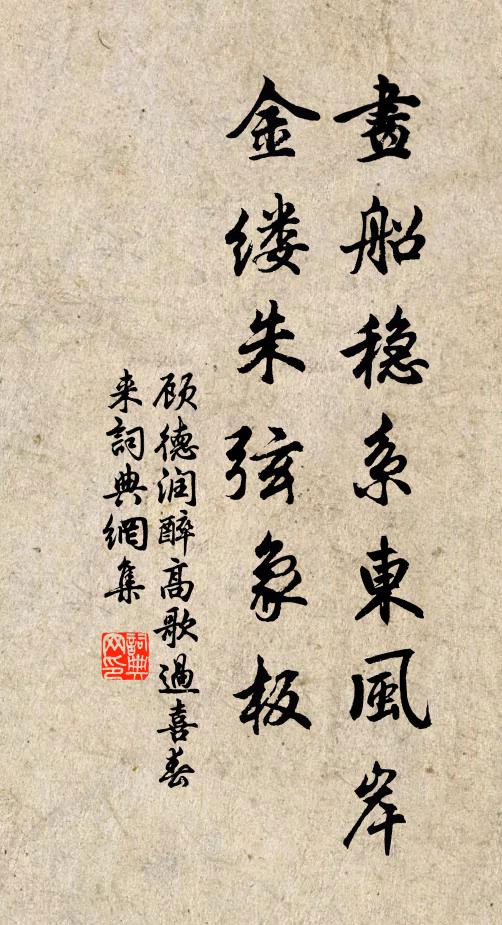 畫船稳系東風岸
金缕朱弦象板
顾德润醉高歌過喜春
来詞典網集
詞典
网印